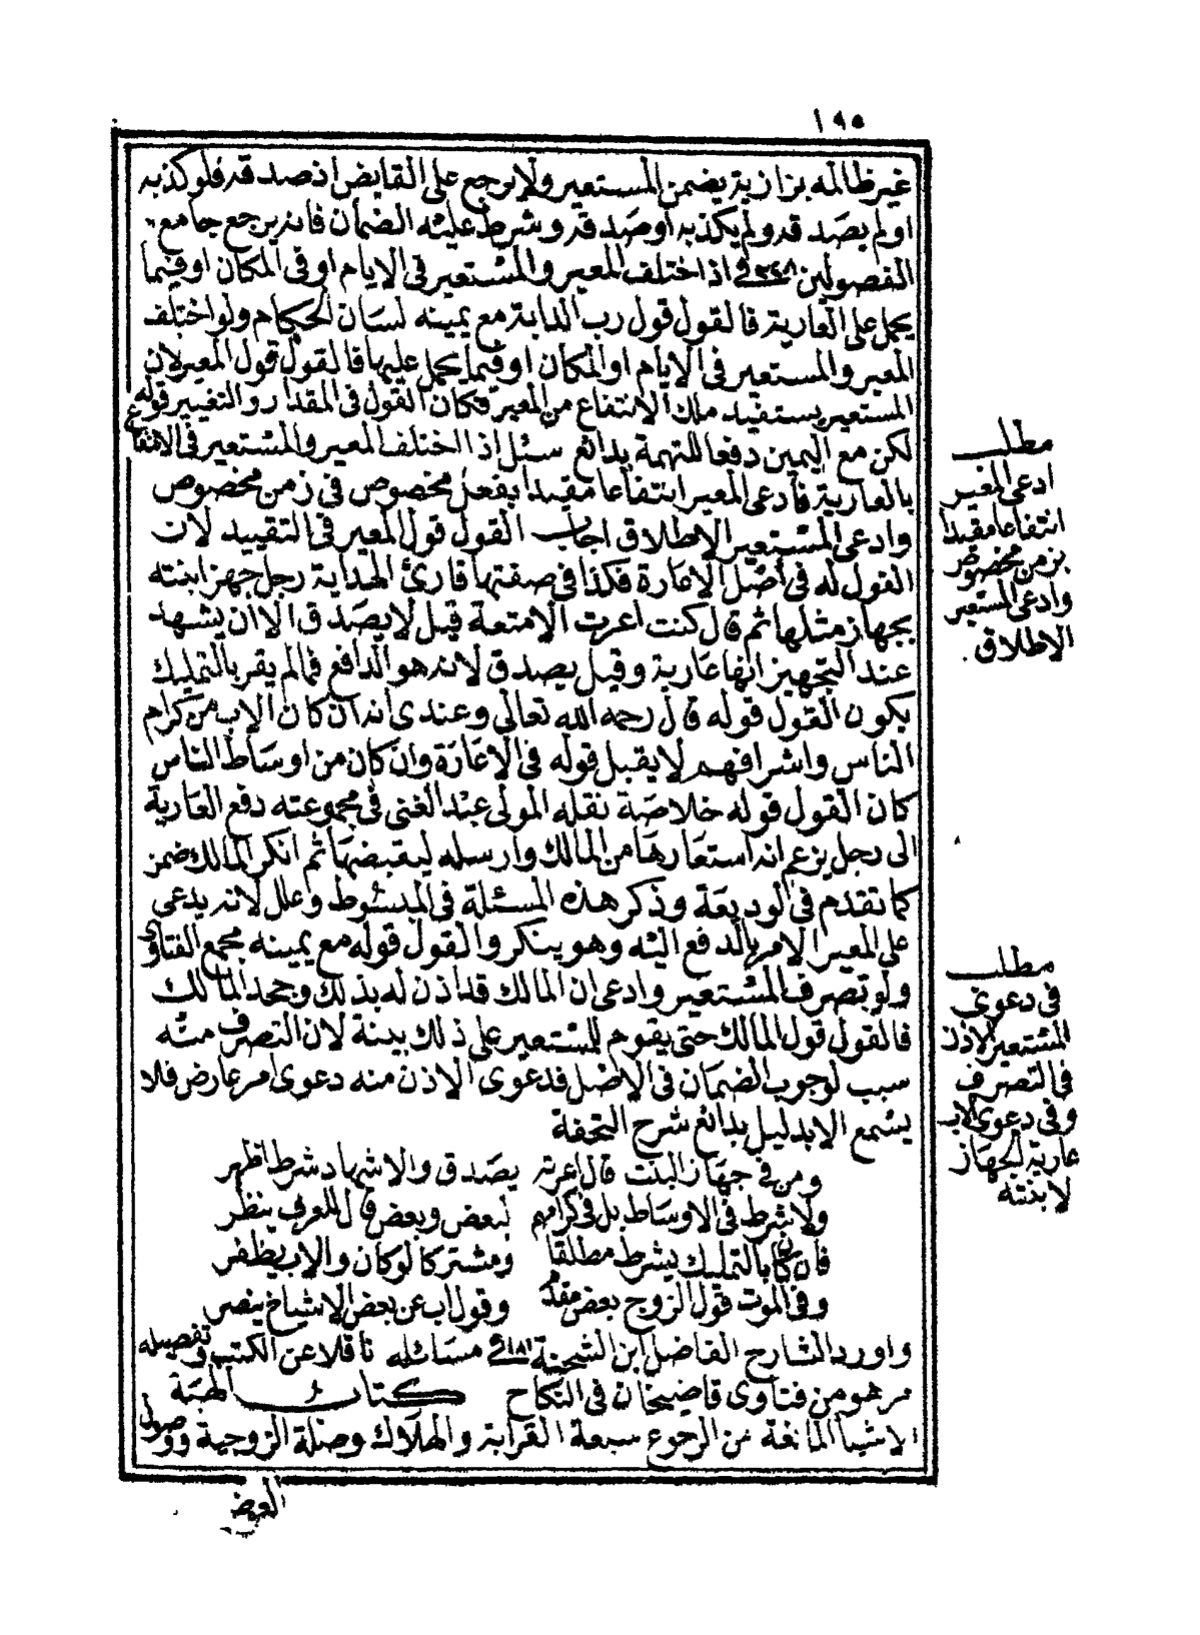 ١٩٥
غير ظالمه بزازية يضمن المستعير ولا يرجع على القابض اذ صدقه فلو كذبه
او لم يصدقه ولم يكذبه او صدقه وشرط عليه الضمان فانه يرجع جامع
الفصولين ٣٤٨ في اذا اختلف المعير والمستعير في الايام او في المكان او فيما
يحمل على العارية فالقول قول رب الدابة مع يمينه لسان الحكام ولو اختلف
المعير والمستعير في الايام او المكان او فيما يحمل عليها فالقول قول المعير لان
المستعير يستفيد ملك الانتفاع من المعير فكان القول في المقدار والتغيير قوله
لكن مع اليمين دفعا للتهمة بدائع سئل اذا اختلف المعير والمستعير في الانتفاع
بالعارية فادعى المعير انتفاعا مقيدا بفعل مخصوص في زمن مخصوص
وادعى المستعير الاطلاق اجاب القول قول المعير في التقييد لان
القول له في اصل الاعارة فكذا في صفتها قارئ الهداية رجل جهز ابنته
بجهاز مثلها ثم قال كنت اعرت الامتعة قيل لا يصدق الا ان يشهد
عند التجهيز انها عارية وقيل يصدق لانه هو الدافع فما لم يقر بالتمليك
يكون القول قوله قال رحمه الله تعالى وعندي انه ان كان الاب من كرام
الناس واشرافهم لا يقبل قوله في الاعارة وان كان من اوساط الناس
كان القول قوله خلاصة نقله المولى عبد الغني في مجموعته دفع العارية
الى رجل يزعم انه استعارها من المالك وارسله ليقبضها ثم انكر المالك ضمن
كما تقدم في الوديعة وذكر هذه المسئلة في المبسوط وعلل لانه يدعي
على المعير الامر بالدفع اليه وهو ينكر والقول قوله مع يمينه مجمع الفتاوى
ولو تصرف المستعير وادعى ان المالك قد اذن له بذلك وجحد المالك
فالقول قول المالك حتى يقوم للمستعير على ذلك بينة لان التصرف منه
سبب لوجوب الضمان في الاصل فدعوى الاذن منه دعوى امر عارض فلا
يسمع الا بدليل بدائع شرح التحفة
ومن في جهاز البنت قال اعرته يصدق والاشهاد شرط اظهر
ولا شرط في الاوساط بل في كرامهم لبعض وبعض قال للعرف ينظر
فان كان بالتمليك يشرط مطلقا ومشتركا لو كان والاب يظفر
وفي الموت قول الزوج بعض مقدم وقول اب عن بعض الاشياخ ينصر
واورد الشارح الفاضل ابن الشحنة ١٨١ في مسائله ناقلا عن الكتب وتفصيله
مر هو من فتاوى قاضيخان في النكاح كتاب الهبة
الاشيا المانعة من الرجوع سبعة القرابة والهلاك وصلة الزوجية ووصول
العوض
مطلب
ادعى المعير
انتفاعا مقيدا
بزمن مخصوص
وادعى المستعير
الاطلاق
مطلب
في دعوى
المستعير الاذن
في التصرف
وفي دعوى الاب
عارية الجهاز
لابنته